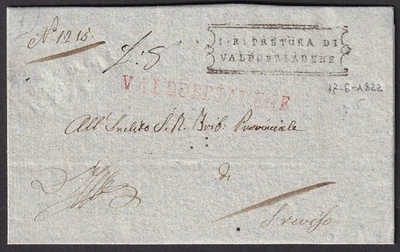 N. 1215
I. R. PRETURA DI
VALDOBBIADENE
VALDOBBIADENE
17-6-1822
All' Inclito I. R. Trib. Provinciale
di
Treviso